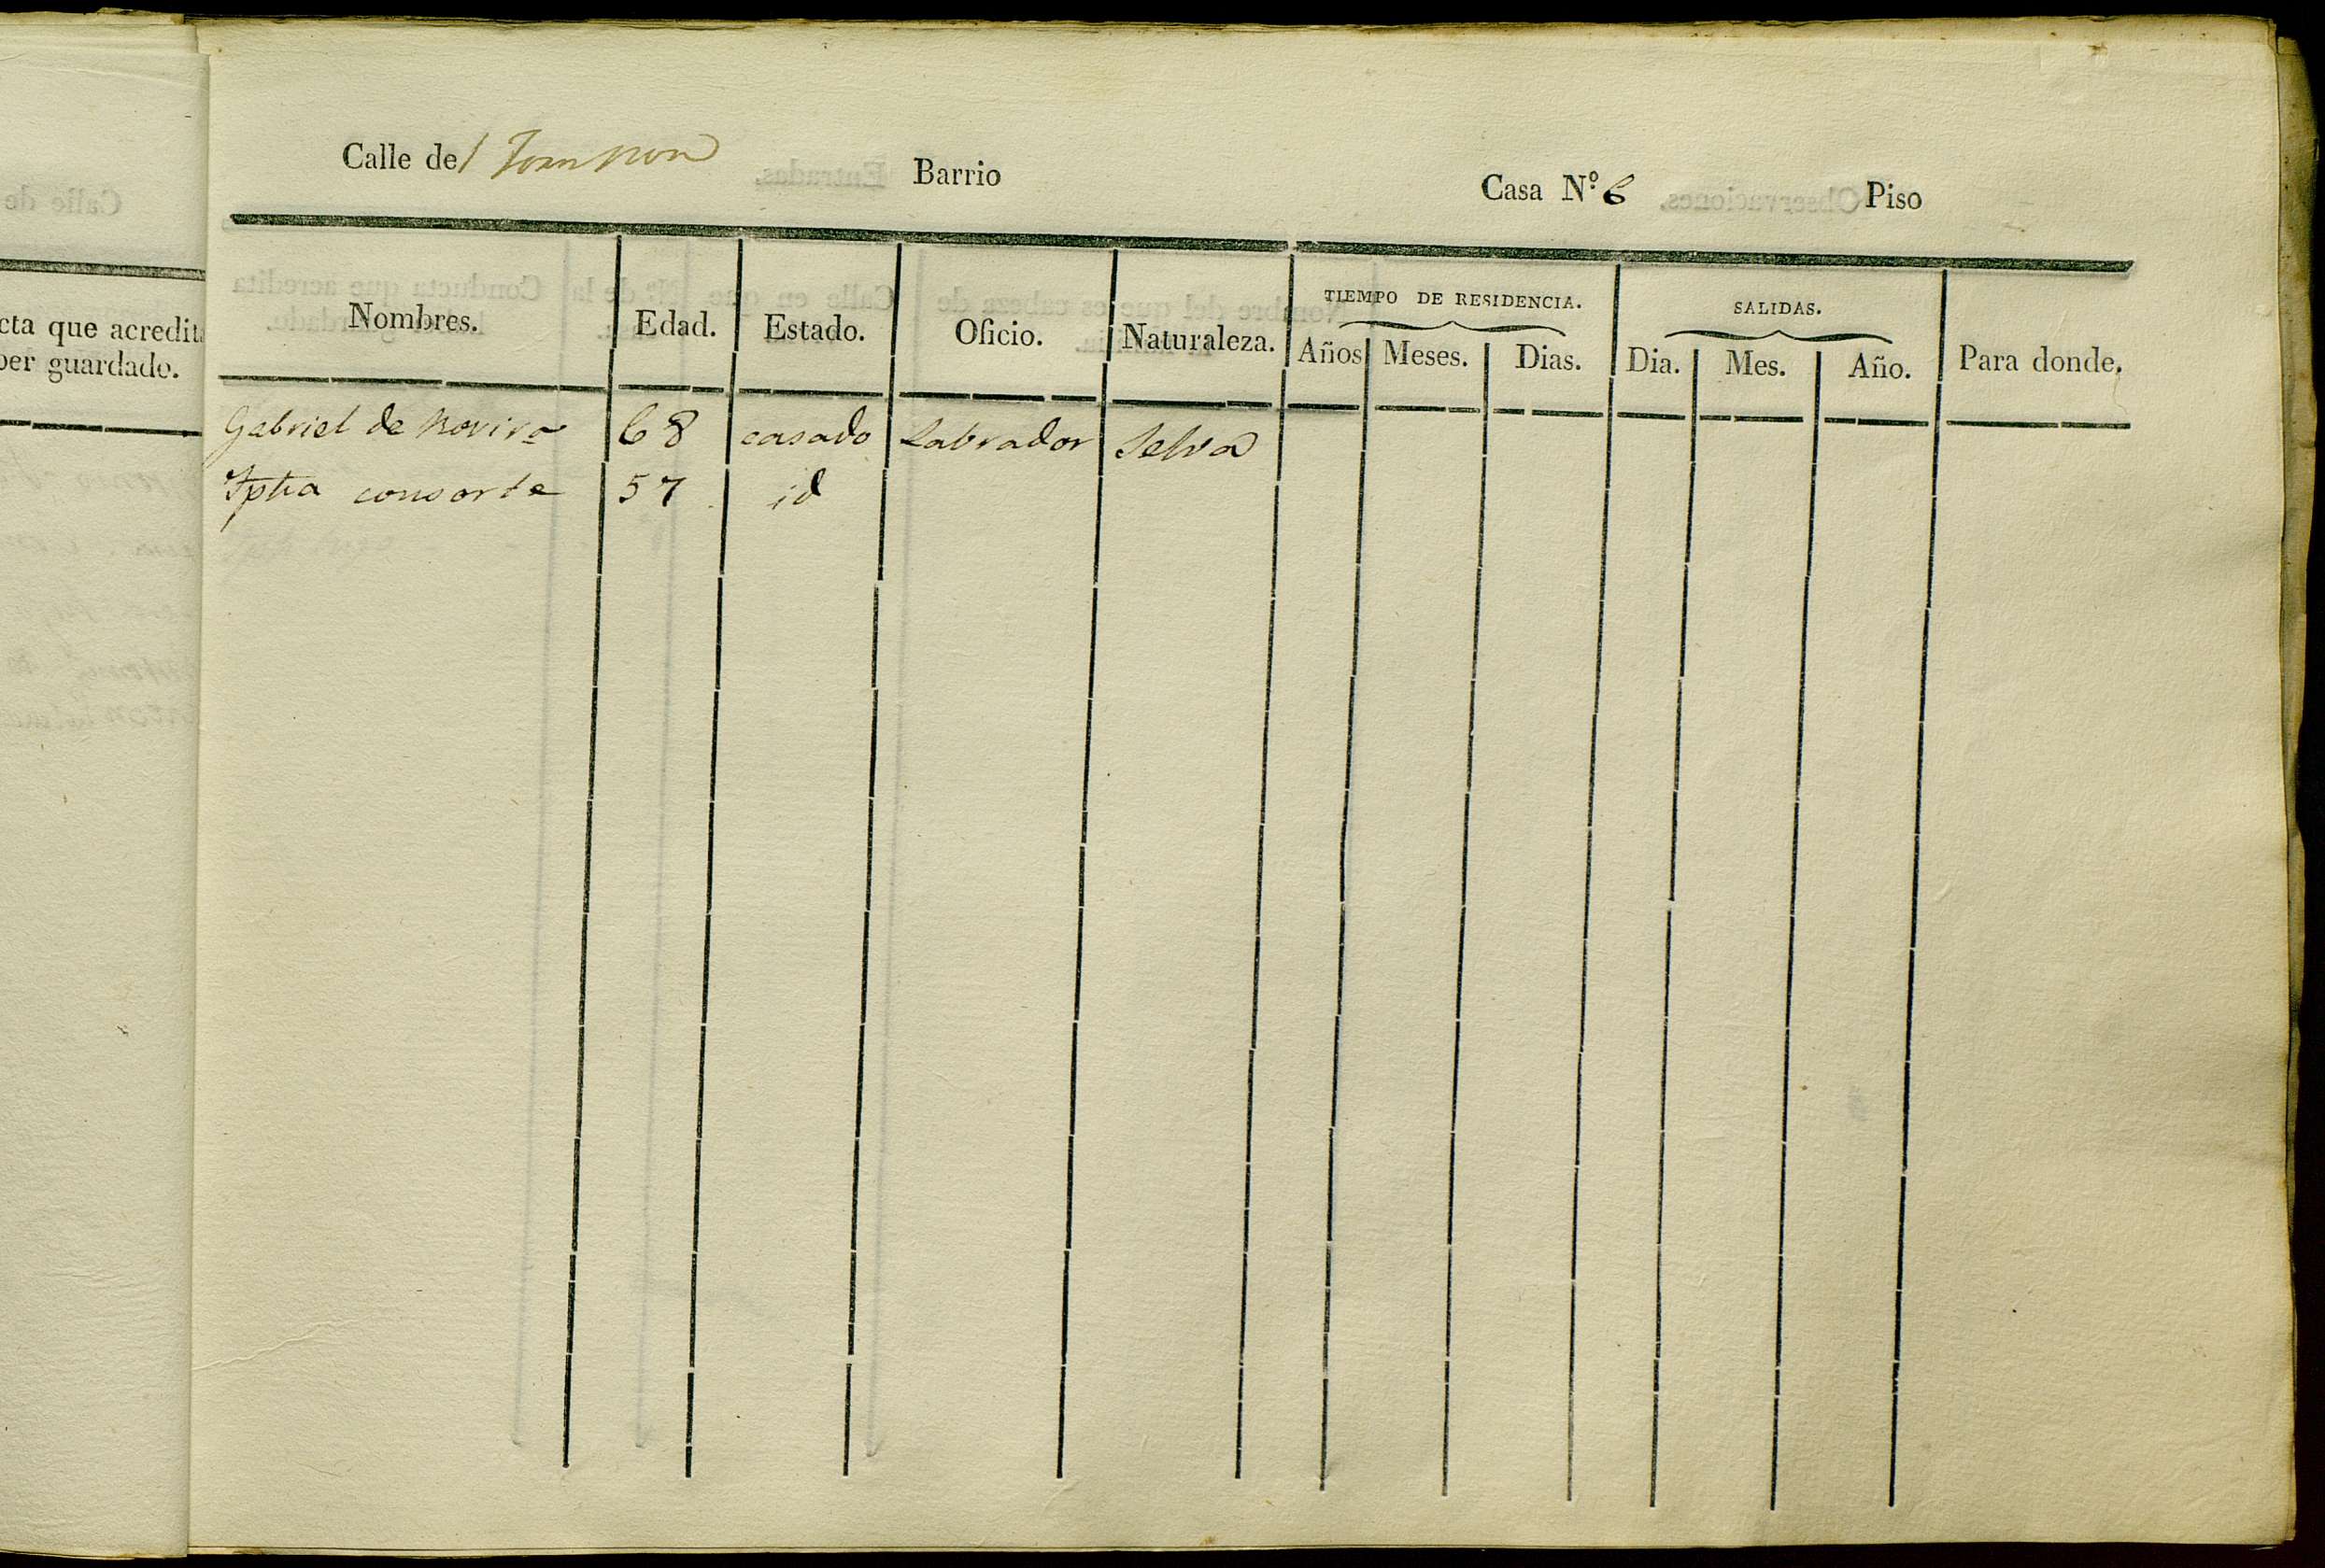 Calle del Barrio Casa N.º 6 Piso
TIEMPO DE RESIDENCIA. SALIDAS.
Nombres. Edad. Estado. Oficio. Naturaleza. Años Meses. Dias. Dia. Mes. Año. Para donde.
Gabriel de Rovira 68 casado Labrador Selva
consorte 57 id
cta que acredita
ber guardado.